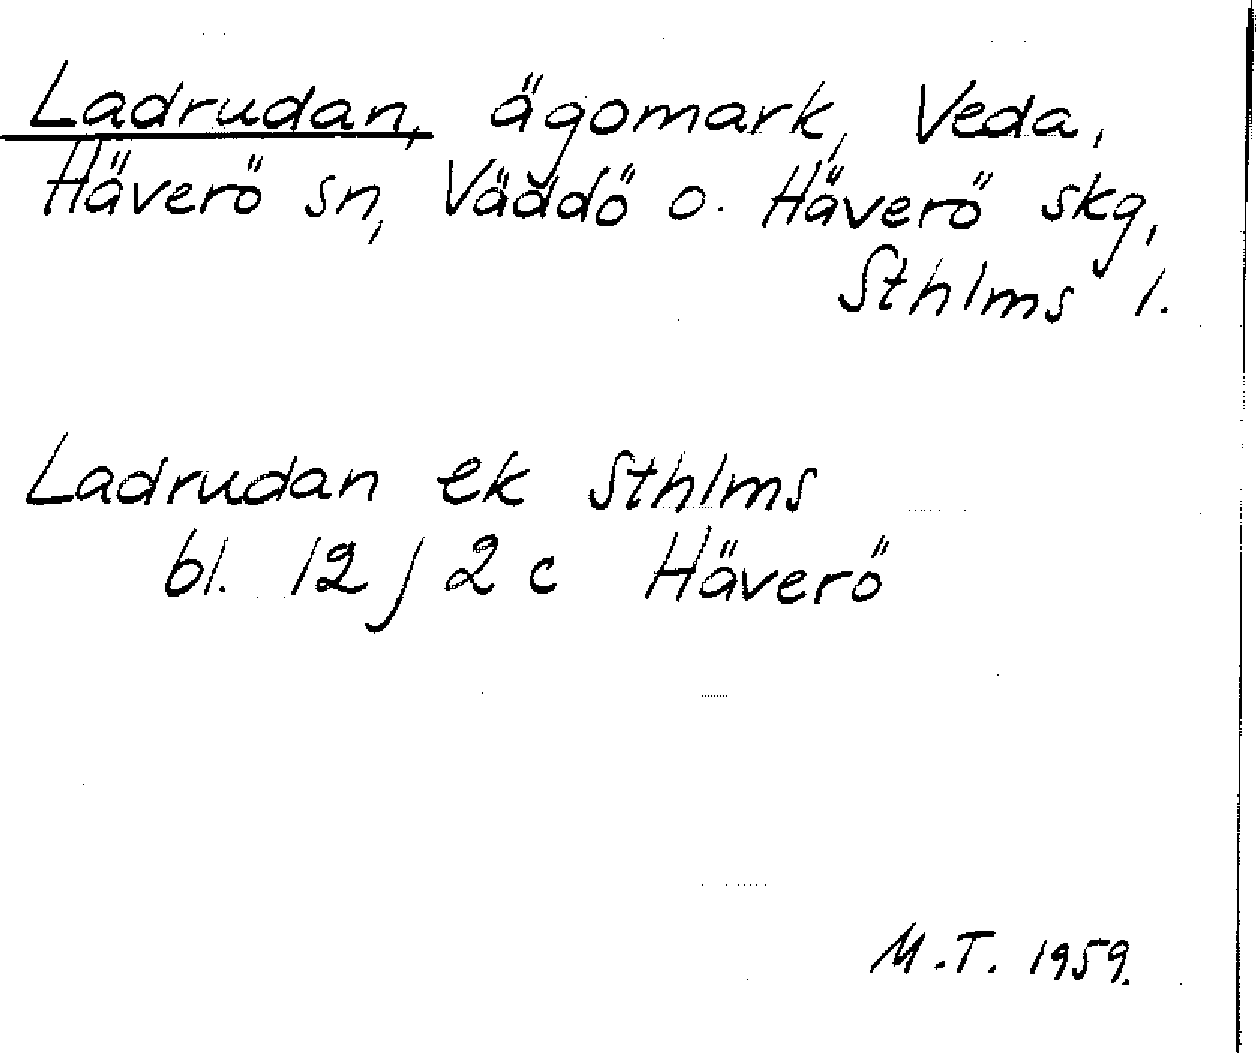 Ladrudan, ägomark, Veda,
Häverö sn, Väddö o. Häverö skg,
Sthlms l.
Ladrudan ek Sthlms
bl. 12 j 2 c Häverö
M.T. 1959.